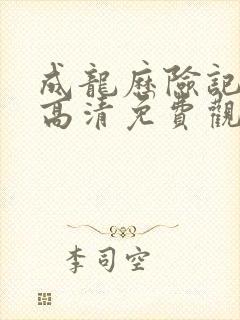 成龍歷險記
高清免費觀
李司空